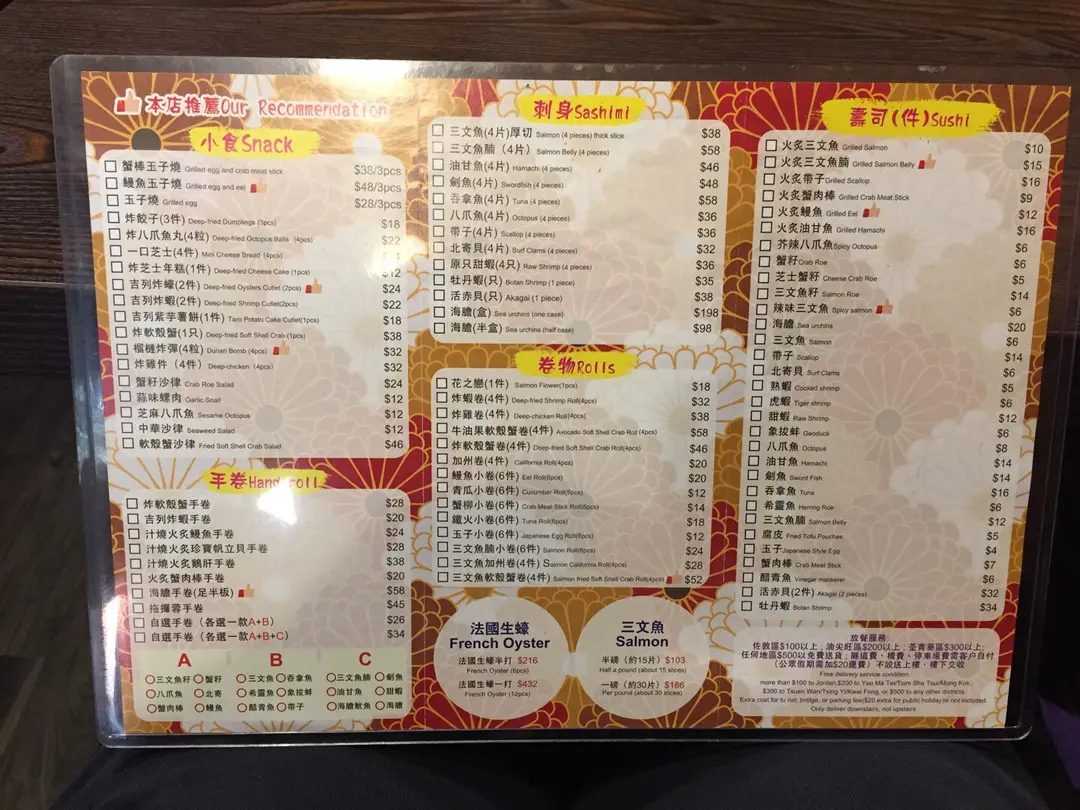 本店推薦Our Recommendation
小食Snack
蟹棒玉子燒 Grilled egg and crab meat stick $38/3pcs
鰻魚玉子燒 Grilled egg and eel $48/3pcs
玉子燒 Grilled egg $28/3pcs
炸餃子(3件) Deep-fried Dumplings (3pcs) $18
炸八爪魚丸(4粒) Deep-fried Octopus Balls (4pcs) $22
一口芝士(4件) Mini Cheese Bread (4pcs)
炸芝士年糕(1件) Deep-fried Cheese Cake (1pcs) $12
吉列炸蠔(2件) Deep-fried Oysters Cutlet (2pcs) $24
吉列炸蝦(2件) Deep-fried Shrimp Cutlet(2pcs) $22
吉列紫芋薯餅(1件) Taro Potato Cake Cutlet(1pcs) $18
炸軟殼蟹(1只) Deep-fried Soft Shell Crab (1pcs) $38
榴槤炸彈(4粒) Durian Bomb (4pcs) $32
炸雞件 (4件) Deep-chicken (4pcs) $32
蟹籽沙律 Crab Roe Salad $24
蒜味螺肉 Garlic Snail $12
芝麻八爪魚 Sesame Octopus $12
中華沙律 Seaweed Salad $12
軟殼蟹沙律 Fried Soft Shell Crab Salad $46
手卷Hand roll
炸軟殼蟹手卷 $28
吉列炸蝦手卷 $20
汁燒火炙鰻魚手卷 $24
汁燒火炙珍寶帆立貝手卷 $28
汁燒火炙鵝肝手卷 $38
火炙蟹肉棒手卷 $20
海膽手卷(足半板) $58
拖攞蓉手卷 $45
自選手卷（各選一款A+B） $26
自選手卷（各選一款A+B+C） $34
A B C
三文魚籽 蟹籽 三文魚 吞拿魚 三文魚腩 劍魚
八爪魚 北寄 希靈魚 象拔蚌 油甘魚 甜蝦
蟹肉棒 鰻魚 醋青魚 帶子 海膽魷魚 海膽
刺身Sashimi
三文魚(4片)厚切 Salmon (4 pieces) thick slice $38
三文魚腩（4片） Salmon Belly (4 pieces) $58
油甘魚(4片) Hamachi (4 pieces) $46
劍魚(4片) Swordfish (4 pieces) $48
吞拿魚(4片) Tuna (4 pieces) $58
八爪魚(4片) Octopus (4 pieces) $36
帶子(4片) Scallop (4 pieces) $36
北寄貝(4片) Surf Clams (4 pieces) $32
原只甜蝦(4只) Raw Shrimp (4 pieces) $36
牡丹蝦(只) Botan Shrimp (1 piece) $35
活赤貝(只) Akagai (1 piece) $38
海膽(盒) Sea urchins (one case) $198
海膽(半盒) Sea urchins (half case) $98
卷物Rolls
花之戀(1件) Salmon Flower(1pcs) $18
炸蝦卷(4件) Deep-fried Shrimp Roll(4pcs) $32
炸雞卷(4件) Deep-chicken Roll(4pcs) $38
牛油果軟殼蟹卷(4件) Avocado Soft Shell Crab Roll (4pcs) $58
炸軟殼蟹卷(4件) Deep-fried Soft Shell Crab Roll(4pcs) $46
加州卷(4件) California Roll(4pcs) $20
鰻魚小卷(6件) Eel Roll(6pcs) $20
青瓜小卷(6件) Cucumber Roll(6pcs) $12
蟹柳小卷(6件) Crab Meat Stick Roll(6pcs) $14
鐵火小卷(6件) Tuna Roll(6pcs) $18
玉子小卷(6件) Japanese Egg Roll(6pcs) $12
三文魚腩小卷(6件) Salmon Roll(6pcs) $24
三文魚加州卷(4件) Salmon California Roll(4pcs) $28
三文魚軟殼蟹卷(4件) Salmon fried Soft Shell Crab Roll(4pcs) $52
法國生蠔
French Oyster
法國生蠔半打 $216
French Oyster (6pcs)
法國生蠔一打 $432
French Oyster (12pcs)
三文魚
Salmon
半磅（約15片）$103
Half a pound (about 15 slices)
一磅（約30片）$186
Per pound (about 30 slices)
壽司(件)Sushi
火炙三文魚 Grilled Salmon $10
火炙三文魚腩 Grilled Salmon Belly $15
火炙帶子Grilled Scallop $16
火炙蟹肉棒 Grilled Crab Meat Stick $9
火炙鰻魚 Grilled Eel $12
火炙油甘魚 Grilled Hamachi $16
芥辣八爪魚Spicy Octopus $6
蟹籽Crab Roe $6
芝士蟹籽 Cheese Crab Roe $5
三文魚籽 Salmon Roe $14
辣味三文魚 Spicy salmon $6
海膽 Sea urchins $20
三文魚 Salmon $6
帶子 Scallop $14
北寄貝 Surf Clams $6
熟蝦 Cooked shrimp $5
虎蝦 Tiger shrimp $6
甜蝦 Raw Shrimp $12
象拔蚌 Geoduck $6
八爪魚 Octopus $8
油甘魚 Hamachi $14
劍魚 Sword Fish $14
吞拿魚 Tuna $16
希靈魚 Herring Roe $6
三文魚腩 Salmon Belly $12
腐皮 Fried Tofu Pouches $5
玉子Japanese Style Egg $4
蟹肉棒 Crab Meat Stick $7
醋青魚 Vinegar mackerel $6
活赤貝(2件) Akagai (2 pieces) $32
牡丹蝦 Botan Shrimp $34
放餐服務:
佐敦區$100以上；油尖旺區$200以上；荃青葵區$300以上；
任何地區$500以免費送貨；隧道費、橋費、停車場費需客户自付
（公眾假期需加$20運費）不設送上樓，樓下交收
Free delivery service condition
more than $100 to Jordan,$200 to Yau Ma Tei/Tsim Sha Tsui/Mong Kok,
$300 to Tsuen Wan/Tsing Yi/Kwai Fong, or $500 to any other districts.
Extra cost for tunnel, bridge, or parking fee($20 extra for public holiday)is not included.
Only deliver downstairs, not upstairs